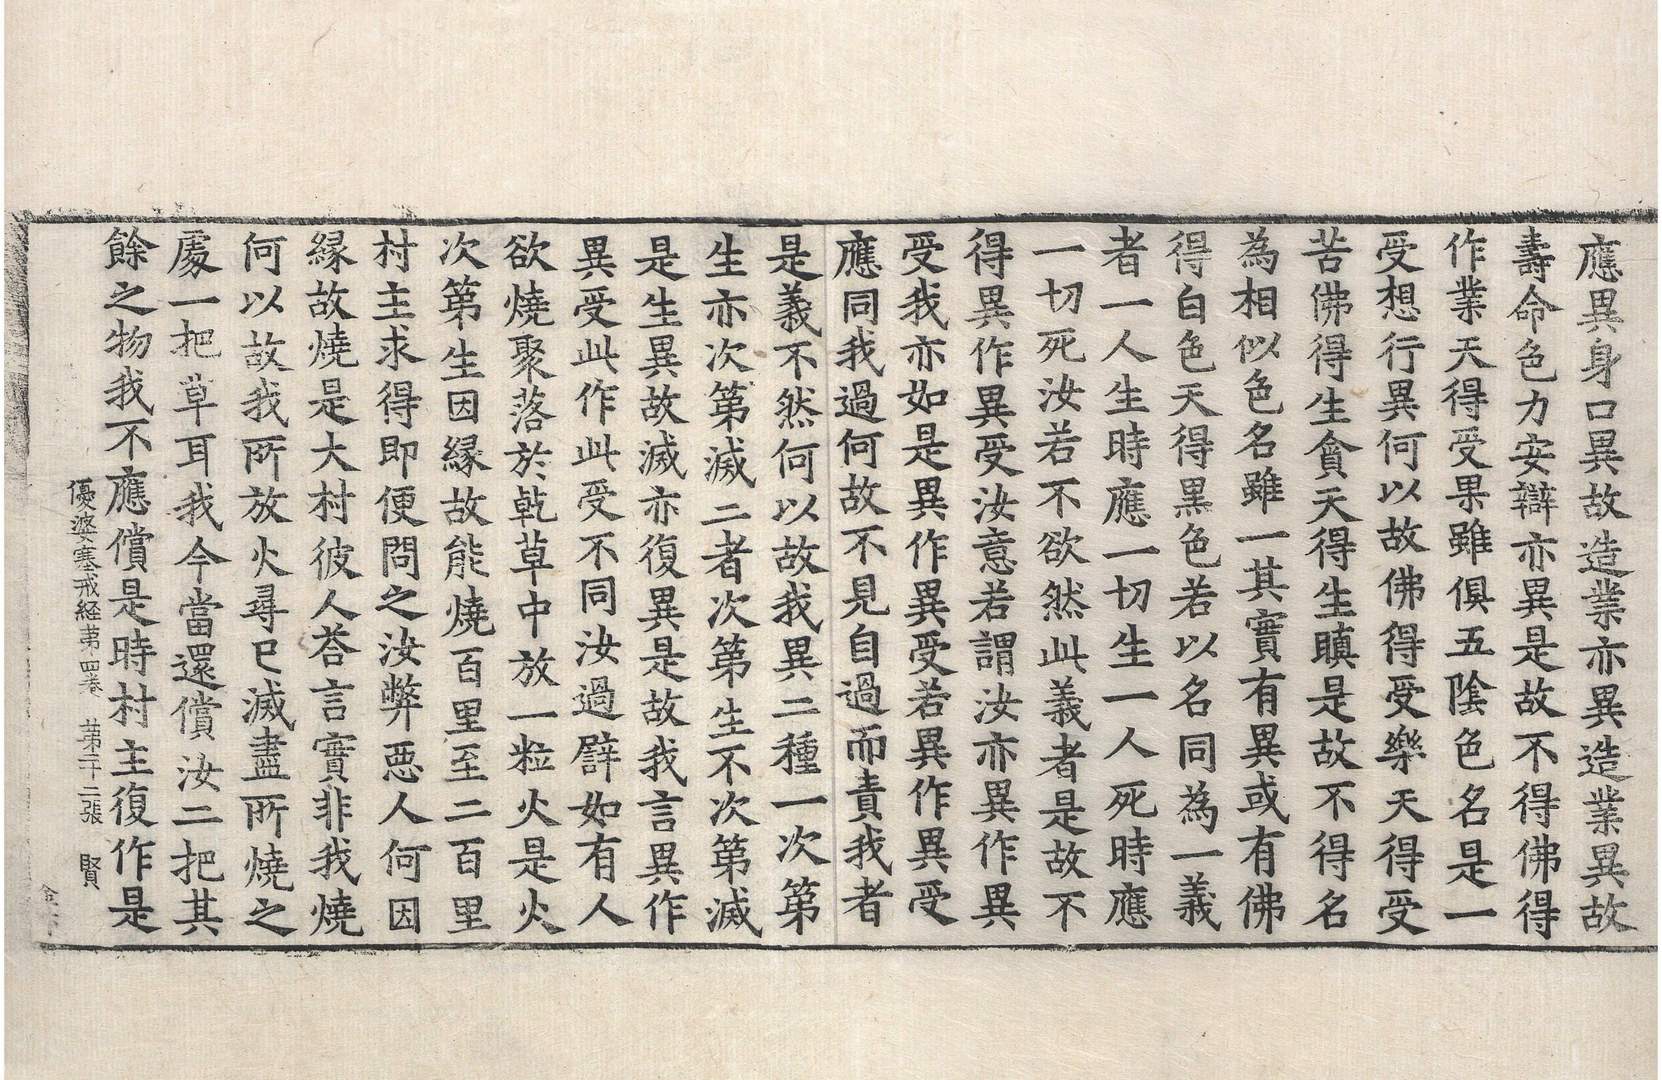 應異身口異故造業亦異造業異故
壽命色力安辯亦異是故不得佛得
作業天得受果雖俱五陰色名是一
受想行異何以故佛得受樂天得受
苦佛得生貪天得生瞋是故不得名
為相似色名雖一其實有異或有佛
得白色天得黑色若以名同為一義
者一人生時應一切生一人死時應
一切死汝若不欲然此義者是故不
得異作異受汝意若謂汝亦異作異
受我亦如是異作異受若異作異受
應同我過何故不見自過而責我者
是義不然何以故我異二種一次第
生亦次第滅二者次第生不次第滅
是生異故滅亦復異是故我言異作
異受此作此受不同汝過譬如有人
欲燒聚落於乾草中放一粒火是火
次第生因緣故能燒百里至二百里
村主求得即便問之汝弊惡人何因
緣故燒是大村彼人荅言實非我燒
何以故我所放火尋已滅盡所燒之
處一把草耳我今當還償汝二把其
餘之物我不應償是時村主復作是
優婆塞戒経苐四卷　苐二十二張　賢